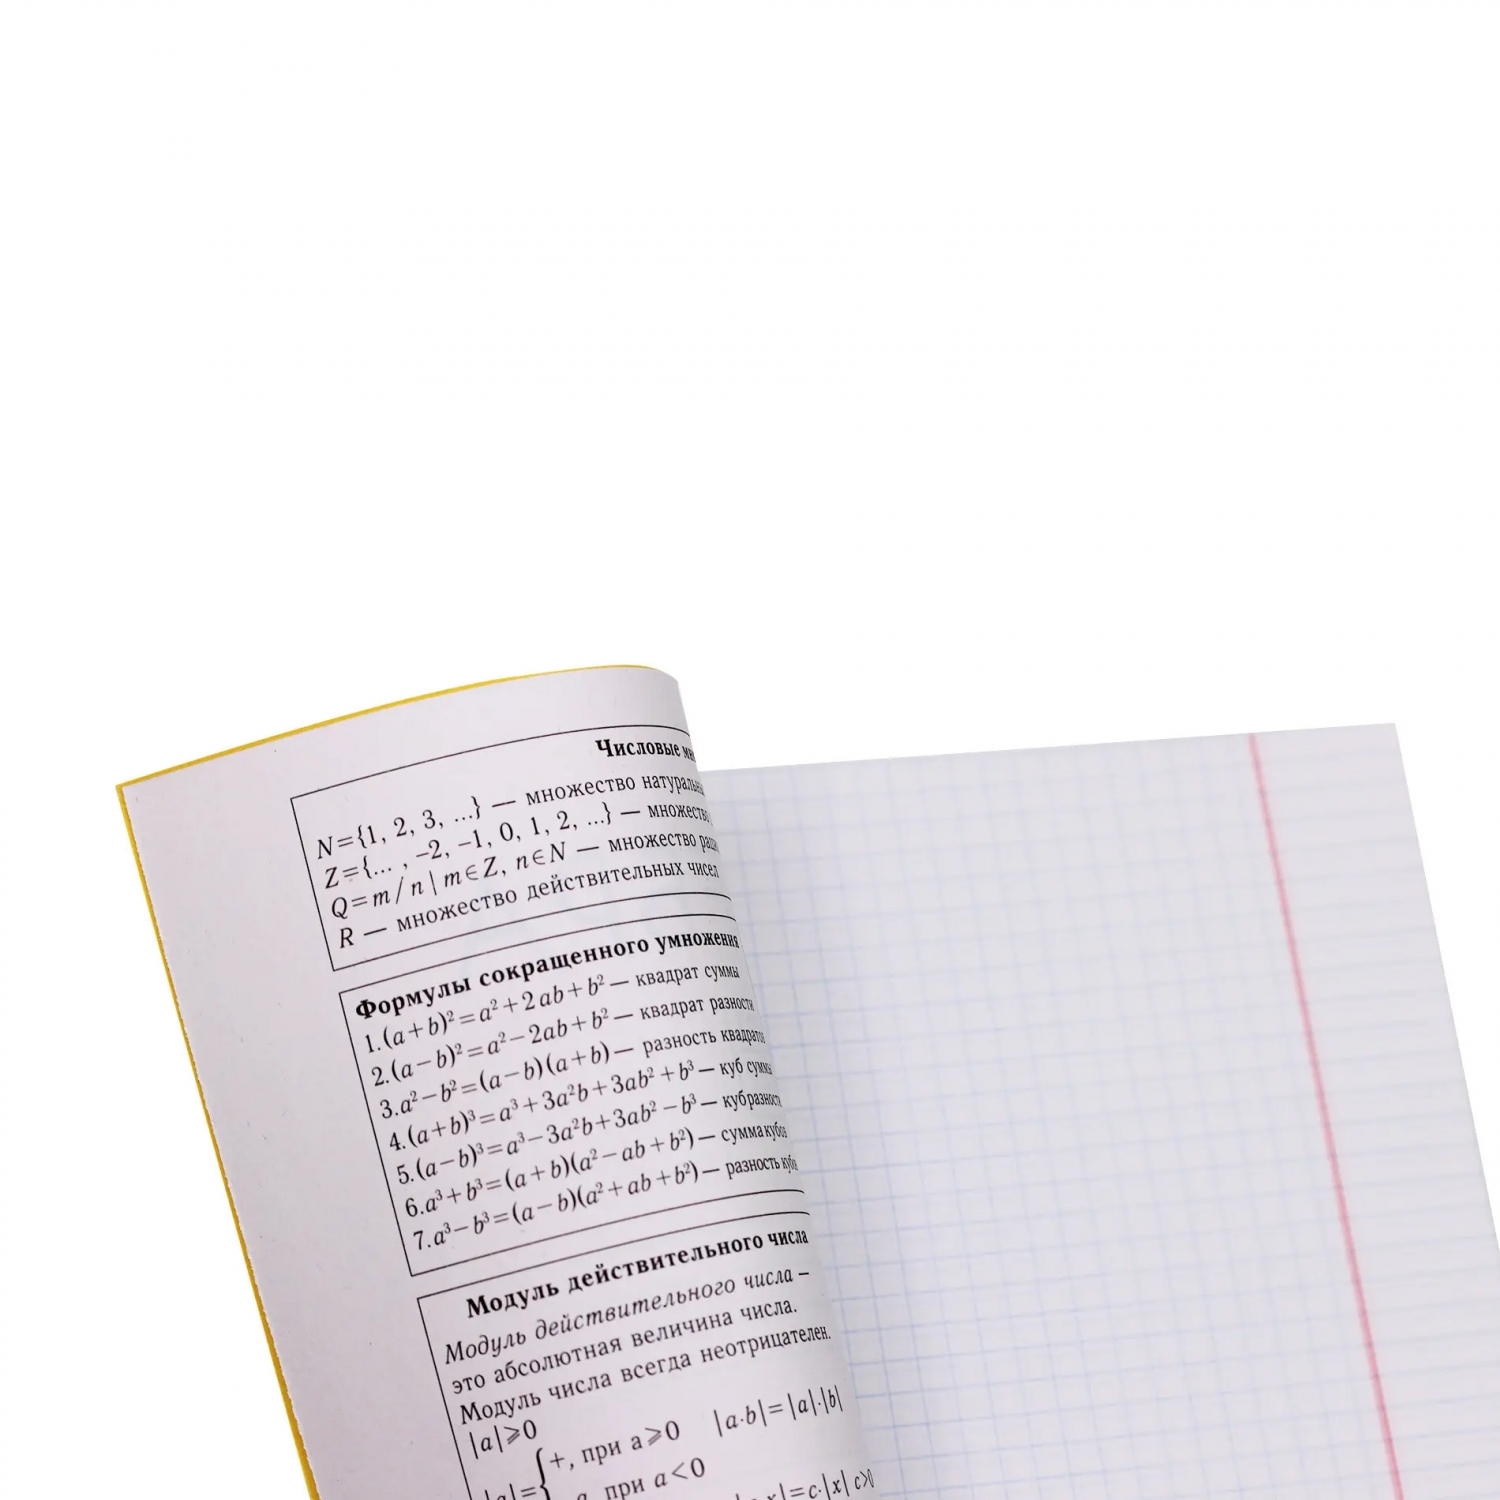 Числовые
N={1, 2, 3, ...} — множество
Z={... , –2, –1, 0, 1, 2, ...} — множество
Q=m/n|m∈Z, n∈N — множество
R — множество действительных чисел
Формулы сокращенного умножения
1.(a+b)²=a²+2ab+b² — квадрат суммы
2.(a–b)²=a²–2ab+b² — квадрат разности
3.a²–b²=(a–b)(a+b) — разность квадратов
4.(a+b)³=a³+3a²b+3ab²+b³ — куб суммы
5.(a–b)³=a³–3a²b+3ab²–b³ — куб разности
6.a³+b³=(a+b)(a²–ab+b²) — сумма кубов
7.a³–b³=(a–b)(a²+ab+b²) — разность кубов
Модуль действительного числа
Модуль действительного числа –
это абсолютная величина числа.
Модуль числа всегда неотрицателен.
|a|⩾0
+, при a⩾0 |a·b|=|a|·|b|
|a|={
a, при a<0
x|=c·|x| c>0